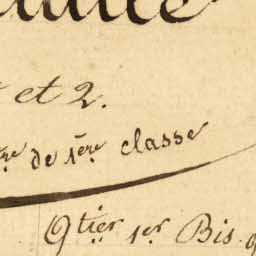 et 2.
de 1ère classe
9tier 1er Bis.